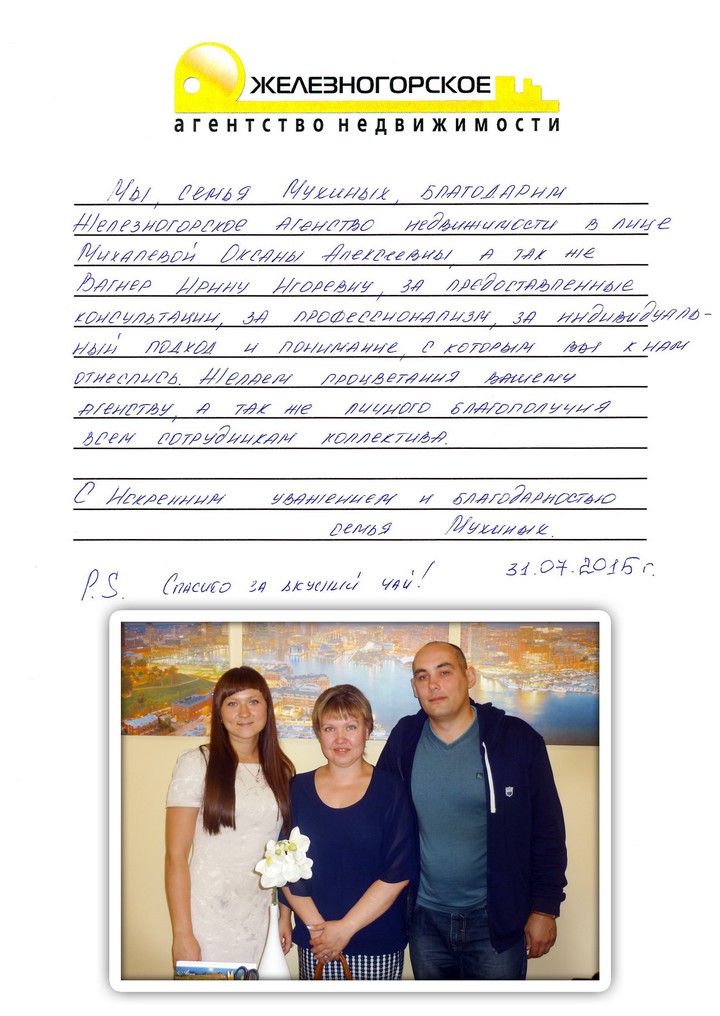 ЖЕЛЕЗНОГОРСКОЕ
агентство недвижимости
Мы, семья Мухиных, благодарим
Железногорское агенство недвижимости в лице
Михалевой Оксаны Алексеевны, а так же
Вагнер Ирину Игоревну, за предоставленные
консультации, за профессионализм, за индивидуаль-
ный подход и понимание, с которым вы к нам
отнеслись. Желаем процветания вашему
агенству, а так же личного благополучия
всем сотрудникам коллектива.
С Искренним уважением и благодарностью
семья Мухиных.
31.07.2015г.
P.S. Спасибо за вкусный чай!